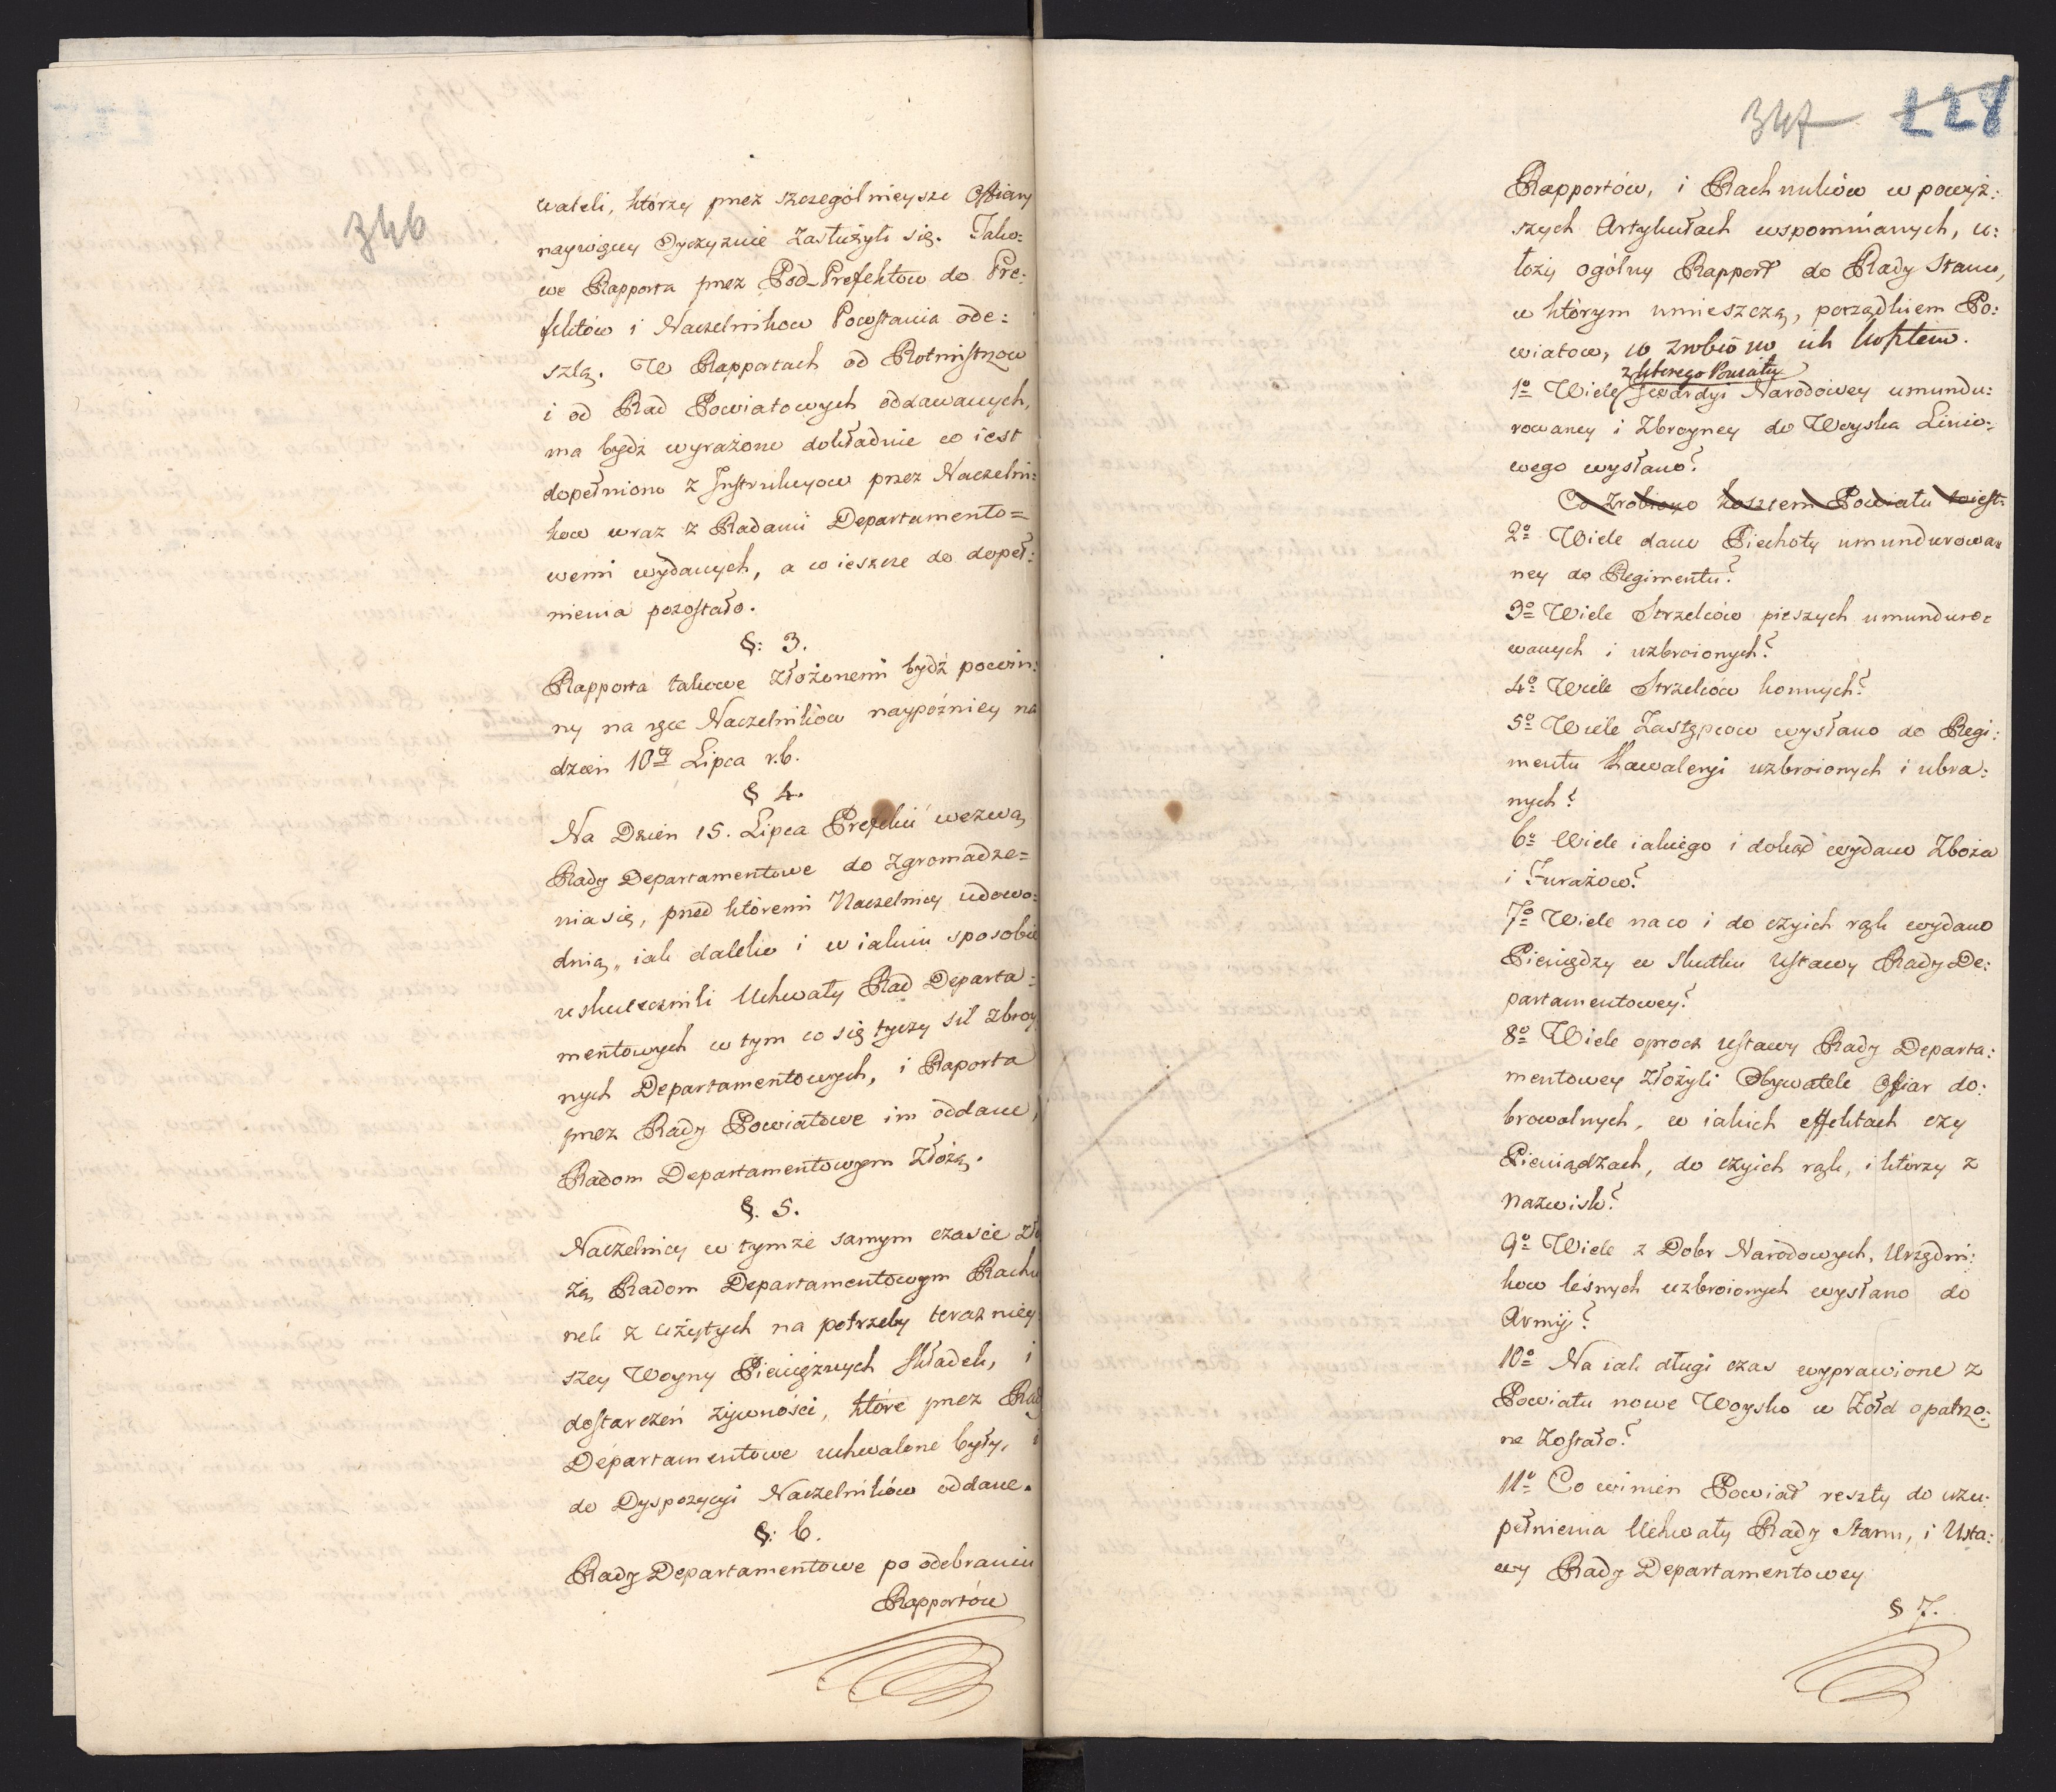 346
wateli, którzy przez szczególnieysze Offiary
naywięcey Oyczyznie zasłużyli się. Tako:
we Rapporta przez Pod-Prefektow do Pre:
fektów i Naczelnikow Powstania ode:
szlą. W Rapportach od Rotmistrzow
i od Rad Powiatowych oddawanych,
ma bydz wyrażone dokładnie co iest
dopełniono z Instrukcyow przez Naczelni:
kow wraz z Radami Departamento=
wemi wydanych, a co ieszcze do dopeł:
nienia pozostało.
§: 3.
Rapporta takowe złożonemi bydź powin:
ny na ręce Naczelników naypóżniey na
dzień 10ty Lipca r.b.
§ 4.
Na Dzień 15. Lipca Prefekci wezwą
Rady Departamentowe do zgromadze=
nia się, przed któremi Naczelnicy udowo:
dnią, iak daleko i w iakim sposobie
uskutecznili Uchwały Rad Departa:
mentowych w tym co się tyczy sił zbroy
nych Departamentowych, i Raporta
przez Rady Powiatowe im oddane,
Radom Departamentowym złożą.
§. 5.
Naczelnicy w tymże samym czasie zło
żą Radom Departamentowym Rachu
nek z użytych na potrzeby terazniey:
szey Woyny Pieniężnych składek, i
dostarczeń żywności, które przez Rad
Departamentowe uchwalone były, i
do Dyspozycyi Naczelników oddane.
§: 6.
Rady Departamentowe po odebraniu
Rapportów
347 228
Rapportów, i Rachunków w powyż:
szych Artykułach wspomnianych, u:
łożą ogólny Rapport do Rady Stanu,
w którym umieszczą, porządkiem Po:
wiatow, co zrobiono ich kosztem.
z którego Powiatu
1o Wiele Gwardyi Narodowey umundu:
rowaney i Zbroyney do Woyska Linio:
wego wysłano?
Co zrobiono kosztem Powiatu to iest:
2o Wiele dano Piechoty umundurowa:
ney do Regimentu?
3o Wiele Strzelców pieszych umunduro:
wanych i uzbroionych?
4o Wiele Strzelców konnych?
5o Wiele Zastępcow wysłano do Regi:
mentu Kawaleryi uzbroionych i ubra:
nych?
6o Wiele iakiego i dokąd wydano Zboża
i Furażow?
7o Wiele na co i do czyich rąk wydano
Pieniędzy w skutku Ustawy Rady De:
partamentowey?
8o Wiele oprocz Ustawy Rady Departa:
mentowey złożyli Obywatele Offiar do:
browolnych, w iakich effektach czy
Pieniądzach, do czyich rąk, i którzy z
Nazwisk?
9o Wiele z Dobr Narodowych, Urzędni:
kow leśnych uzbroionych wysłano do
Armij?
10o Na iak długi czas wyprawione z
Powiatu nowe Woysko w Żołd opatrzo:
ne zostało?
11o Co winien Powiat reszty do uzu:
pełnienia Uchwały Rady Stanu, i Usta:
wy Rady Departamentowey
§ 7.